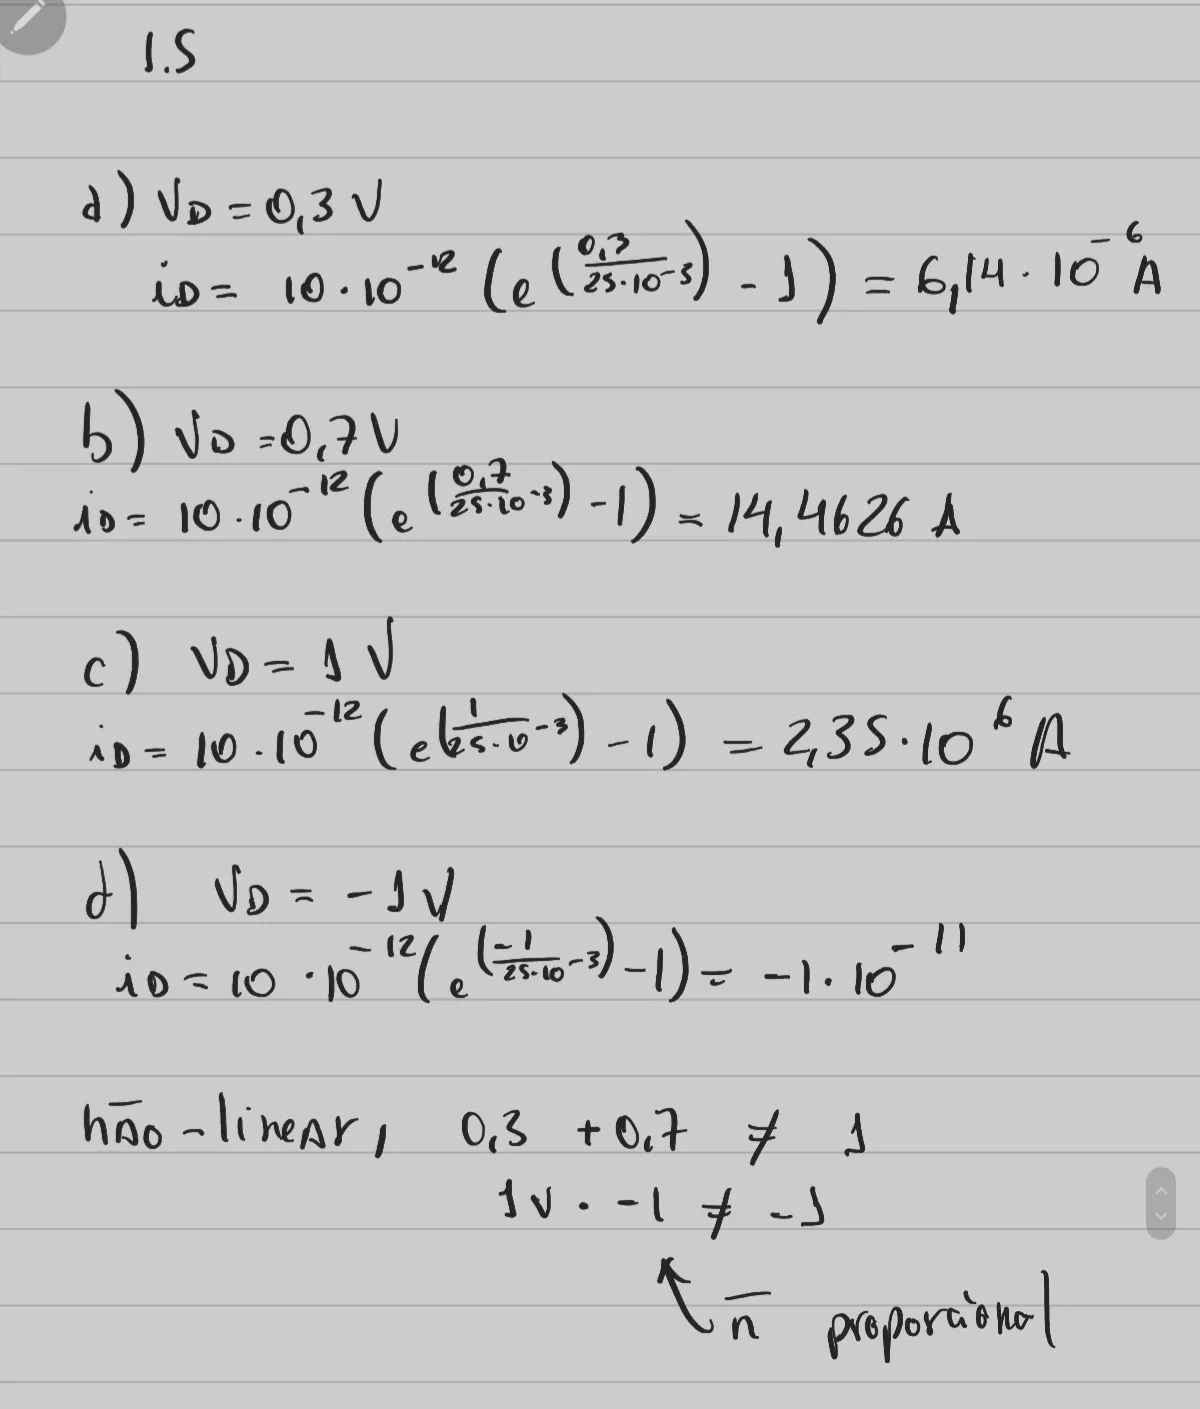 1.5
a) VD = 0,3 V
iD = 10·10^-12 (e^(0,3/25·10^-3) - 1) = 6,14·10^-6 A
b) VD = 0,7 V
iD = 10·10^-12 (e^(0,7/25·10^-3) - 1) = 14,4626 A
c) VD = 1 V
iD = 10·10^-12 (e^(1/25·10^-3) - 1) = 2,35·10^6 A
d) VD = -1 V
iD = 10·10^-12 (e^(-1/25·10^-3) - 1) = -1·10^-11
não-linear, 0,3 + 0,7 ≠ 1
1V · -1 ≠ -1
n̄ proporcional